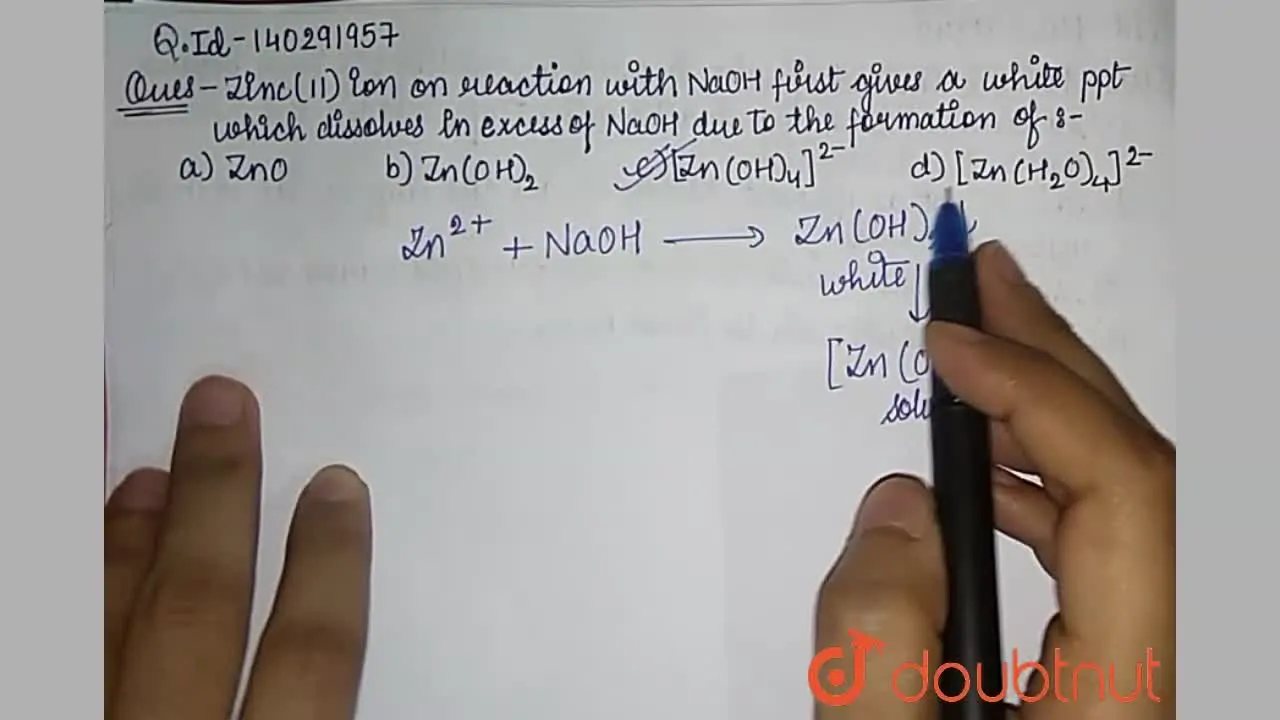 Q.Id-140291957
Ques - Zinc(II) ion on reaction with NaOH first gives a white ppt
which dissolves in excess of NaOH due to the formation of :-
a) ZnO b) Zn(OH)2 c) [Zn(OH)4]2- d) [Zn(H2O)4]2-
Zn2+ + NaOH → Zn(OH)
white ↓
[Zn(O
doubtnut